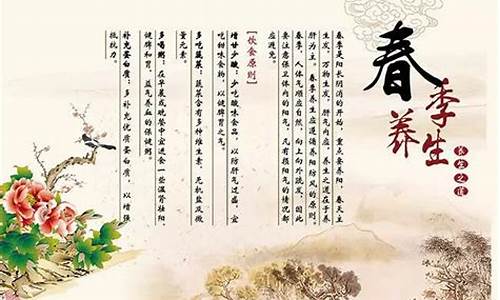 春季养生
养生之道
春季是阳长阴消的开始，重点要养阳。春天主
生发，万物生发，肝气内应，养生之道在于养
肝为主。春季养生应遵循养阳防风的原则。
春季，人体气顺应自然，向上向外疏发，因此
要注意保卫体内的阳气，凡有损阳气的情况都
应避免。
【饮食原则】
增甘少酸：少吃酸味食品，以防肝气过盛，宜
吃甜味食物，以健脾胃之气。
多吃蔬菜：蔬菜含有多种维生素、无机盐及微
量元素。
多喝粥：在早晨或晚餐中宜进食一些温肾壮阳、
健脾和胃、益气养血的保健粥。
补充蛋白质：多补充优质蛋白质，以增强
抵抗力。